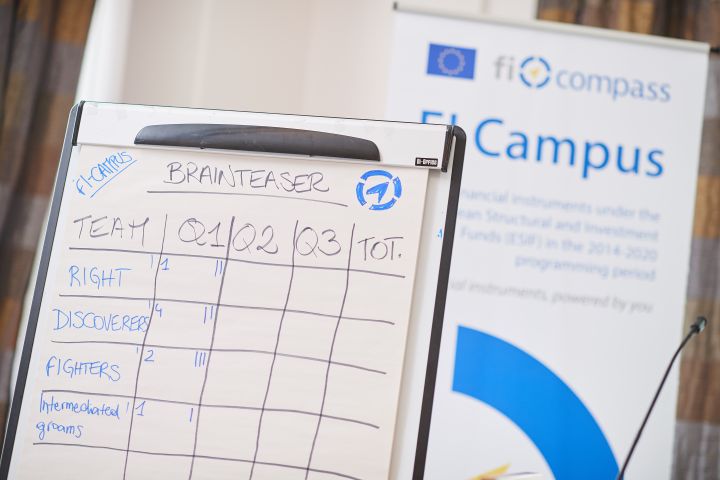 FI-CAMPUS
BRAINTEASER
TEAM Q1 Q2 Q3 TOT.
RIGHT 1 11
DISCOVERERS 4 11
FIGHTERS 2 111
Intermediated 1 1
groams
fi compass
FI Campus
nancial instruments under the
ean Structural and Investment
Funds (ESIF) in the 2014-2020
programming period
ial instruments, powered by you